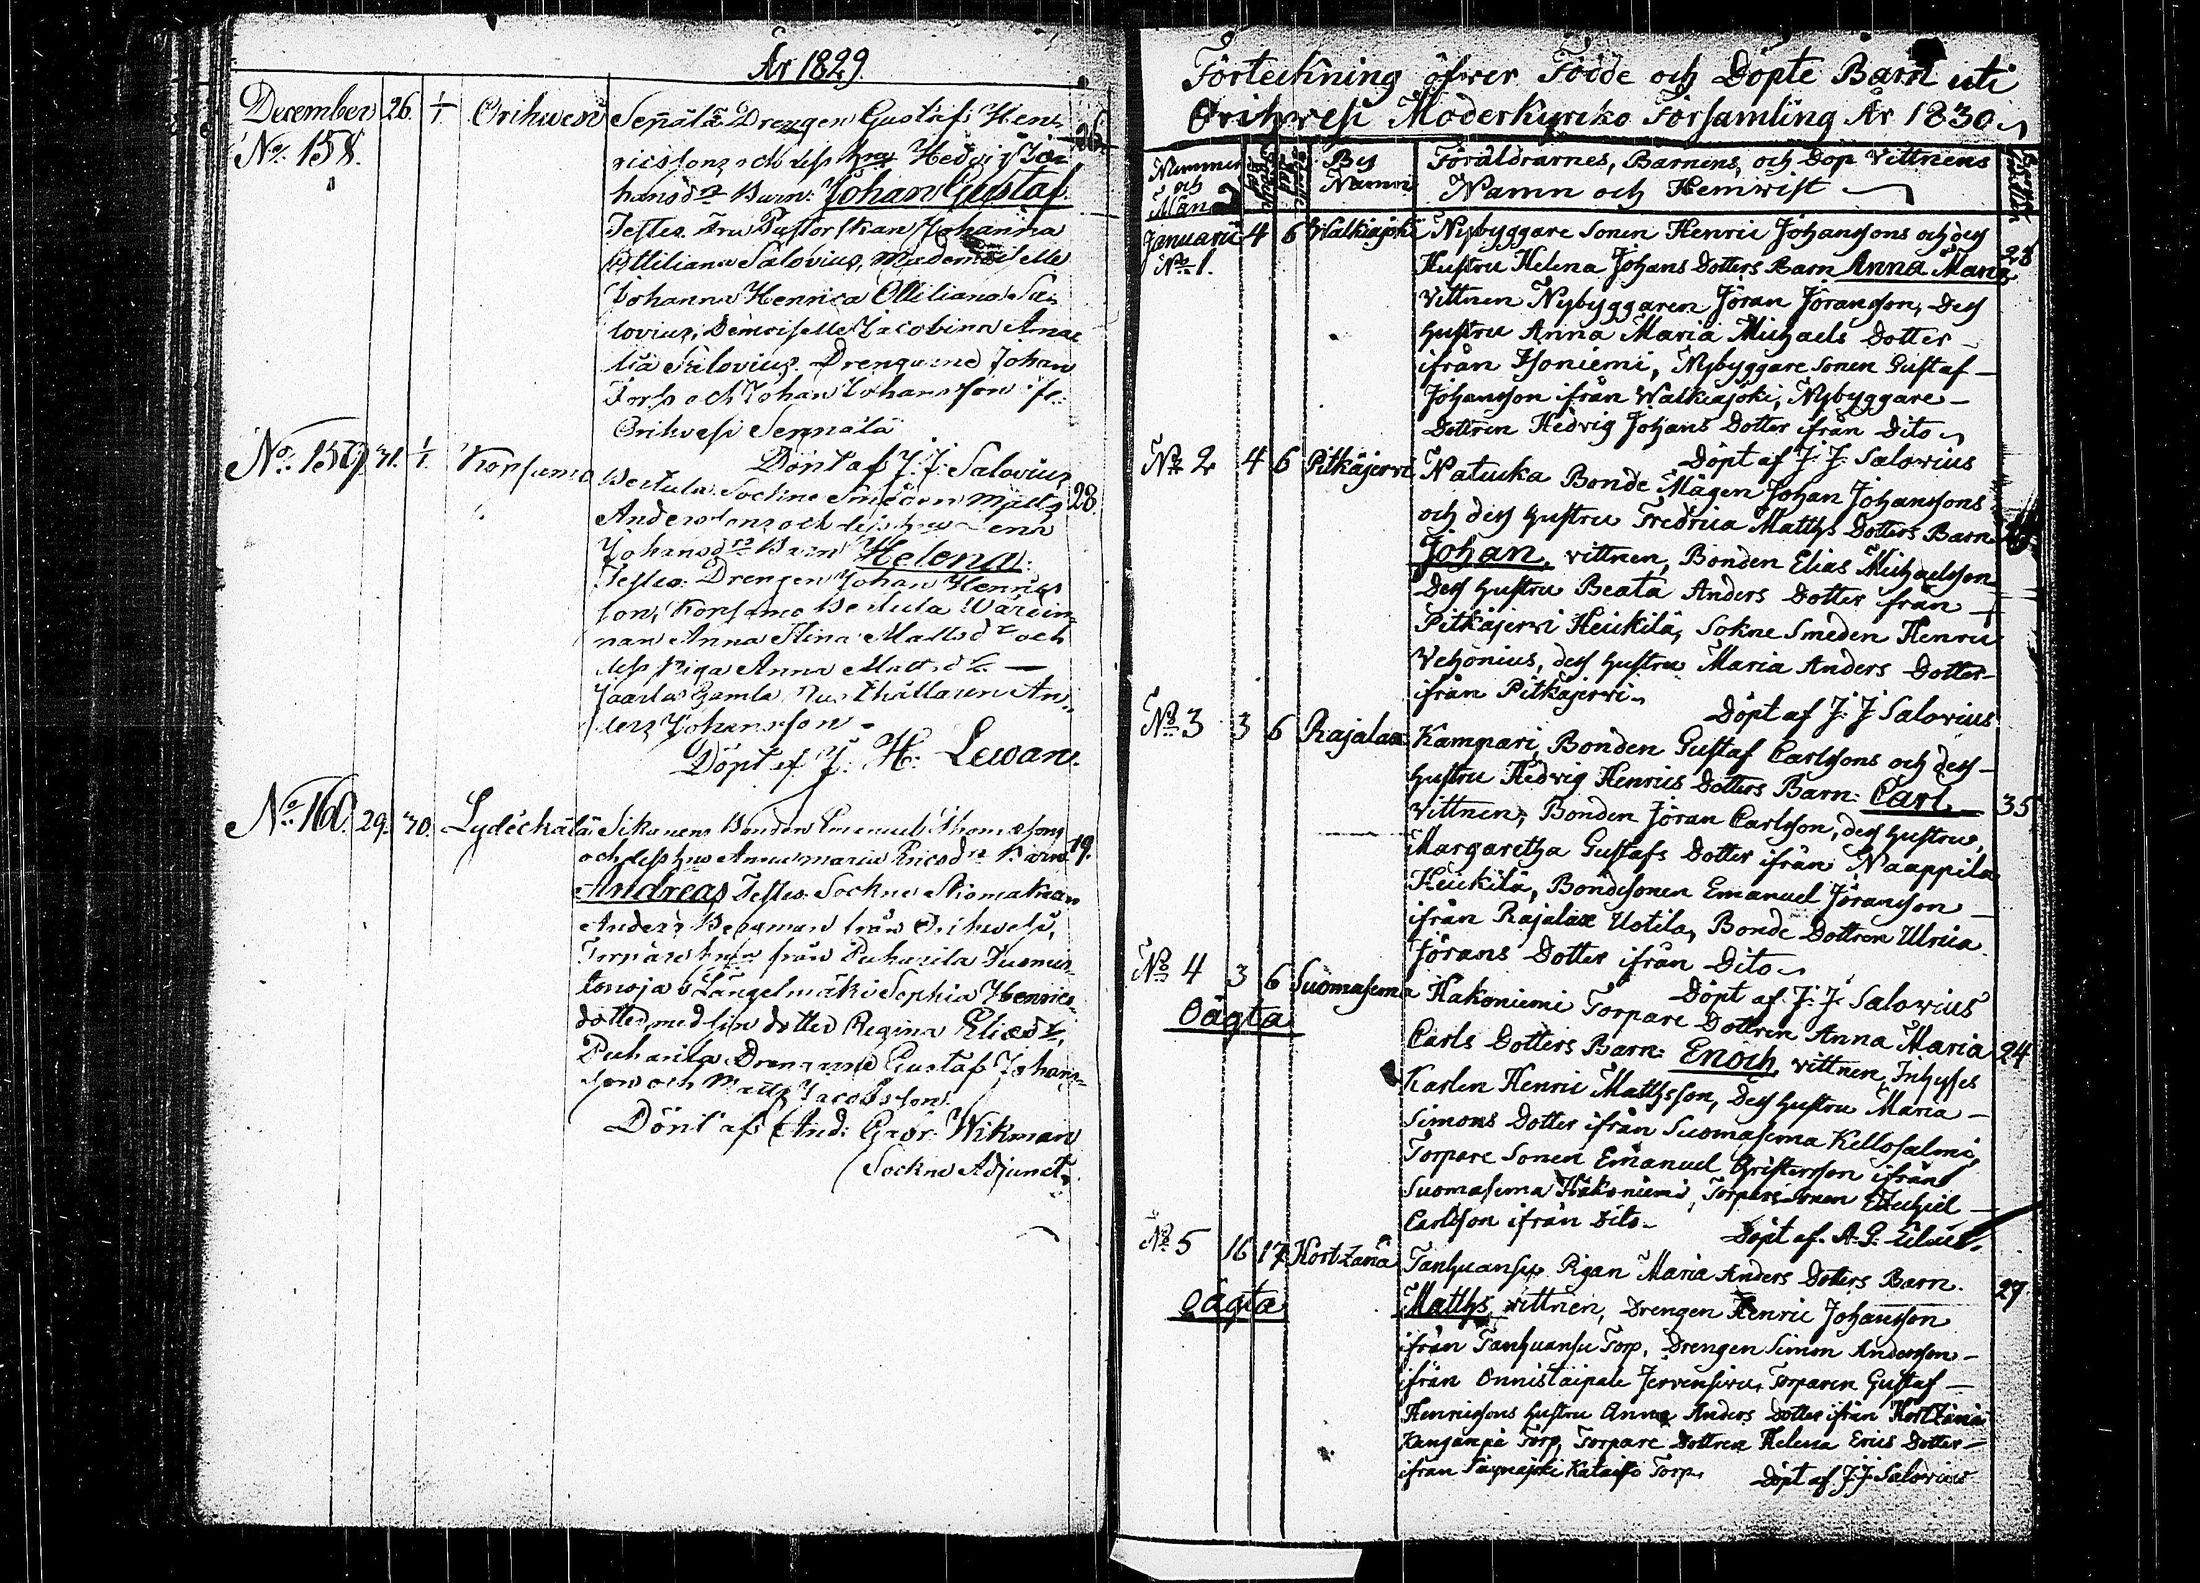 År 1829.
December 26. 1/1 Orihwesi Seppälä Drengen Gustafs Hen
No. 158. ricsons och dess hru Hedvig Jo 26.
hansdrs Barn: Johan Gustaf.
Testes. Fru Pastorskan Johanna
Ottiliana Salovius, Mademoiselle
Johanna Henrica Ottiliana Sa
lovius, Demoiselle Jacobina Ama
lia Salovius. Drengarne Johan
och Johan Johansson
Orihvesi Seppälä
Döpt af J. J. Salovius
No. 159. 31. 1/1. Sockne Smeden Matts 28.
Andersons och dess hru Lena
Johansdrs Barn Helena.
Testes: Drengen Johan Henrics
son,
nan Anna Stina Mattsdr och
dess Piga Anna Mattsdr. —
Gamla Rusthållaren An
ders Johansson.
Döpt af J. H. Lewan.
No. 160. 29. 30. Bonden Emanuel Thomæsons
och dess hru Anna Maria Ericsdrs Barn 19.
Andreas Testes. Sockne Skomakaren
Anders Bergman från Orihwesi,
från Puharila
Längelmäki Sophia Henrics
dotter med sin dotter Regina Eliædr,
Puharila Drengarne Gustaf Johans
son och Matts Jacobsson.
Döpt af And: Gabr: Wikman
Sockne Adjunct.
Förteckning öfwer Födde och Döpte Barn uti
Orihwesi Moderkyrko Församling År 1830
Nummer och Månad By Namn Föräldrarnes, Barnens, och Dop Vittnens
Namn och Hemwist
Januarii 4 6 Walkiajoki Nybyggare Sonen Henric Johanssons och dess
No 1. Hustru Helena Johans Dotters Barn Anna Maria 28
Vittnen Nybyggaren Jöran Jöransson, Dess
Hustru Anna Maria Michaels Dotter
ifrån Isoniemi, Nybyggare Sonen Gustaf
Johansson ifrån Walkiajoki, Nybyggare
Dottren Hedvig Johans Dotter ifrån Dito
Döpt af J: J: Salovius
No 2 4 6 Pitkäjerwi Natuka Bonde Mågen Johan Johanssons
och dess Hustru Fredrica Matths Dotters Barn
Johan, vittnen, Bonden Elias Michaelsson
Dess Hustru Beata Anders Dotter från
Pitkäjerwi Heikkilä, Sokne Smeden Henric
Vehonius, dess Hustru Maria Anders Dotter
ifrån Pitkäjerwi
Döpt af J: J Salovius
No 3 3 6 Rajalax Kampari Bonden Gustaf Carlssons och dess
Hustru Hedvig Henrics Dotters Barn: Carl 35
Vittnen, Bonden Jöran Carlsson, dess Hustru,
Margaretha Gustafs Dotter ifrån Naappila
Heickilä, Bondesonen Emanuel Jöransson
ifrån Rajalax Uotila, Bonde Dottren Ulrica
Jörans Dotter ifrån Dito
Döpt af J: J: Salovius
No 4 3 6 Suomasema Hakoniemi Torpare Dottren Anna Maria
Oägta Carls Dotters Barn: Enoch, vittnen, Inhyses 24
Karlen Henric Matthsson, Dess Hustru Maria
Simons Dotter ifrån Suomasema Kellosalmi,
Torpare Sonen Emanuel Christersson ifrån
Suomasema Hakoniemi, Torpare Sonen Ezechiel
Carlsson ifrån Dito
Döpt af A. G.
No 5 16 17 Tanhuansu Pigan Maria Anders Dotters Barn. 27
oägta Matths, vittnen, Drengen Henric Johansson
ifrån Tanhuansu Torp, Drengen Simon Andersson
ifrån Onnistaipale Jervensivu, Torparen Gustaf
Henricssons Hustru Anna Anders Dotter ifrån
Kangaspä Torp, Torpare Dottren Helena Erics Dotter
ifrån Torp.
Döpt af J: J: Salovius